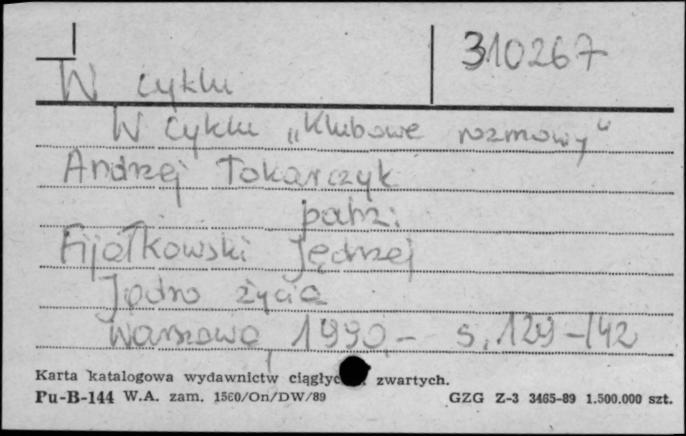 310267
W cyklu
W cyklu „Klubowe rozmowy"
Andrzej Tokarczyk
patrz:
Fijałkowski Jędrzej
Jądro życia
Warszawa, 1990.- s. 129-142
Karta katalogowa wydawnictw ciągłyc zwartych.
Pu-B-144 W.A. zam. 1560/On/DW/89 GZG Z-3 3465-89 1.500.000 szt.